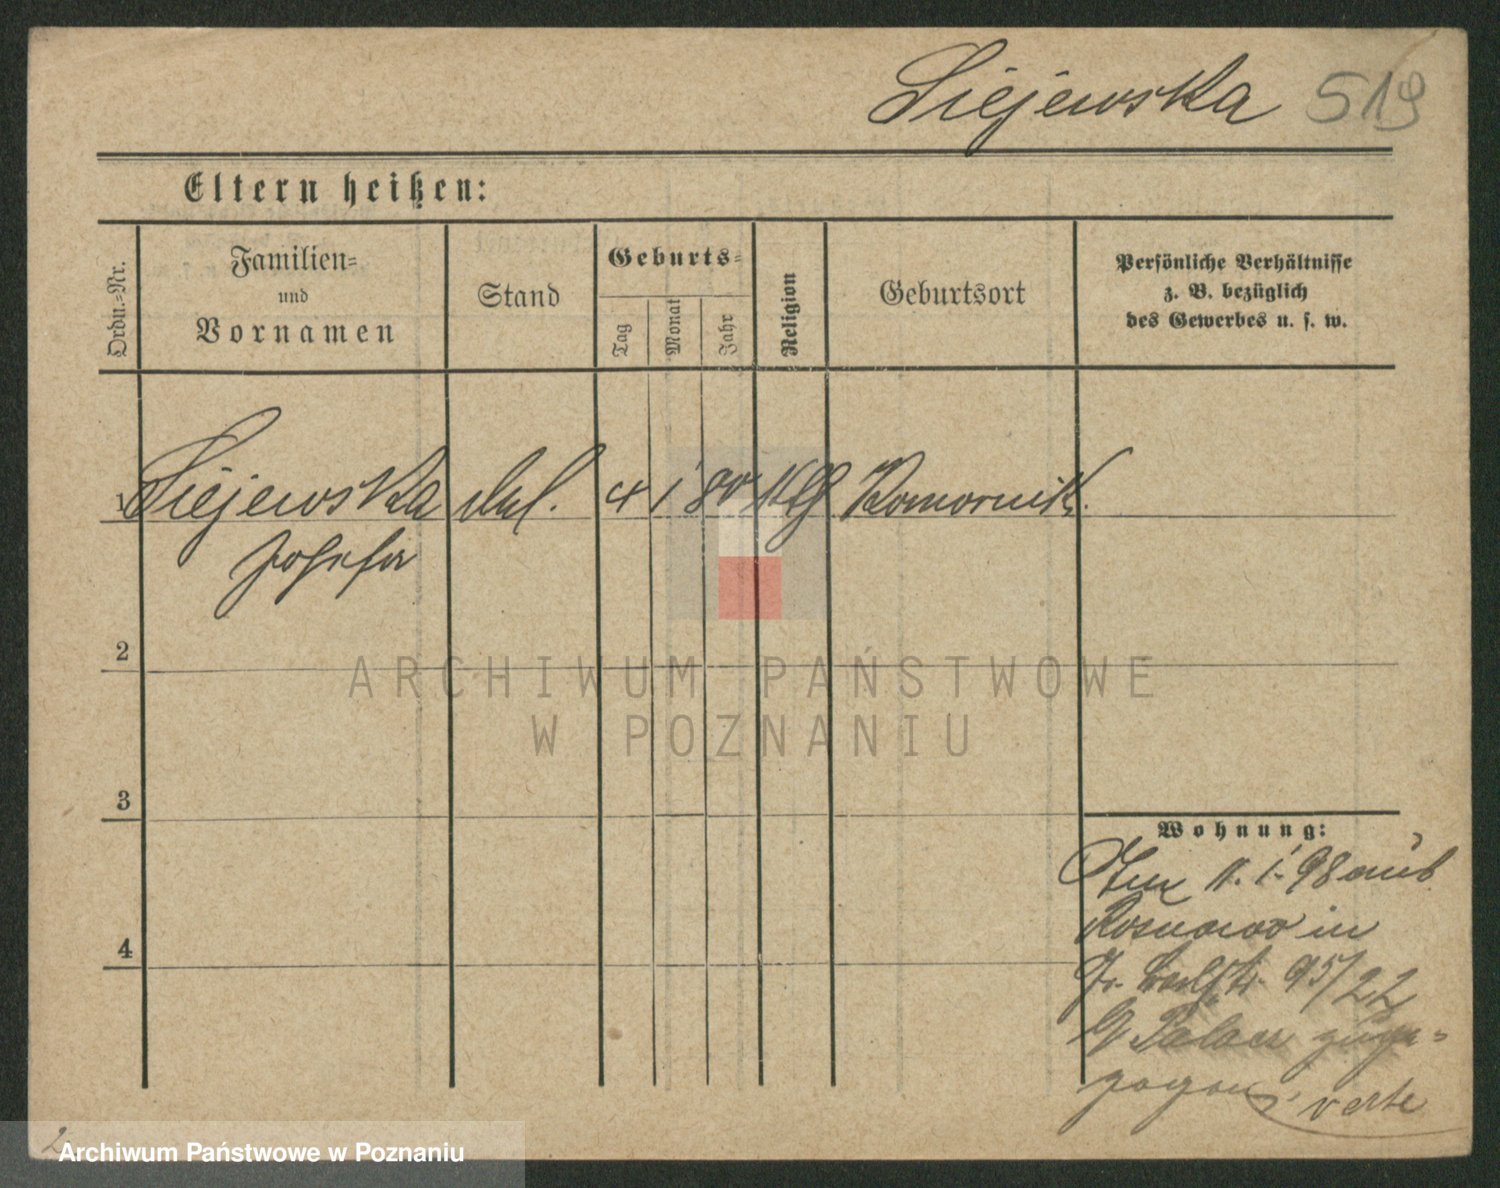 Siejewska 519
Eltern heißen:
Ordn.-Nr.
Familien- und Vornamen
Stand
Geburts-
Tag
Monat
Jahr
Religion
Geburtsort
Persönliche Verhältnisse
z. B. bezüglich
des Gewerbes u. s. w.
1 Siejewska led. 4 1 80 kth Komornik.
Josefa
2
3
4
Wohnung:
11. 1. 98 aus
Rosnowo in
95/22
zuge-
zogen, verte
2
ARCHIWUM PAŃSTWOWE
W POZNANIU
Archiwum Państwowe w Poznaniu